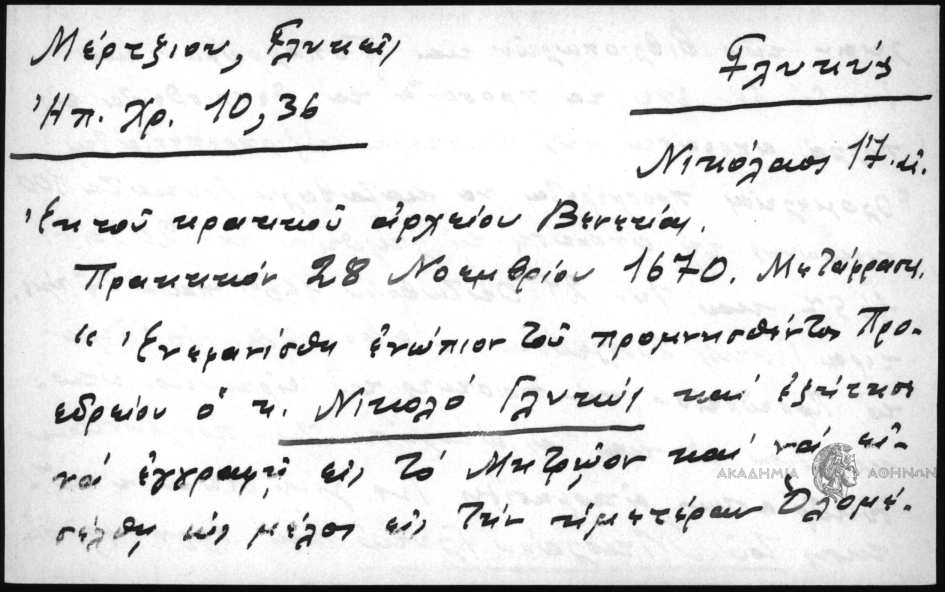 Μέρτζιου, Γλυκεῖς
Ἠπ. Χρ. 10, 36
Γλυκύς
Νικόλαος 17. αἰ.
Ἐκ τοῦ κρατικοῦ ἀρχείου Βενετίας.
Πρακτικόν 28 Νοεμβρίου 1670. Μετάφρασις.
“ Ἐνεφανίσθη ἐνώπιον τοῦ προμνησθέντος Προ-
εδρείου ὁ κ. Νικολό Γλυκύς καί ἐζήτησε
νά ἐγγραφῇ εἰς τό Μητρῷον καί νά εἰ-
σέλθῃ ὡς μέλος εἰς τήν ἡμετέραν Ὁλομέ-
ΑΚΑΔΗΜΙΑ ΑΘΗΝΩΝ